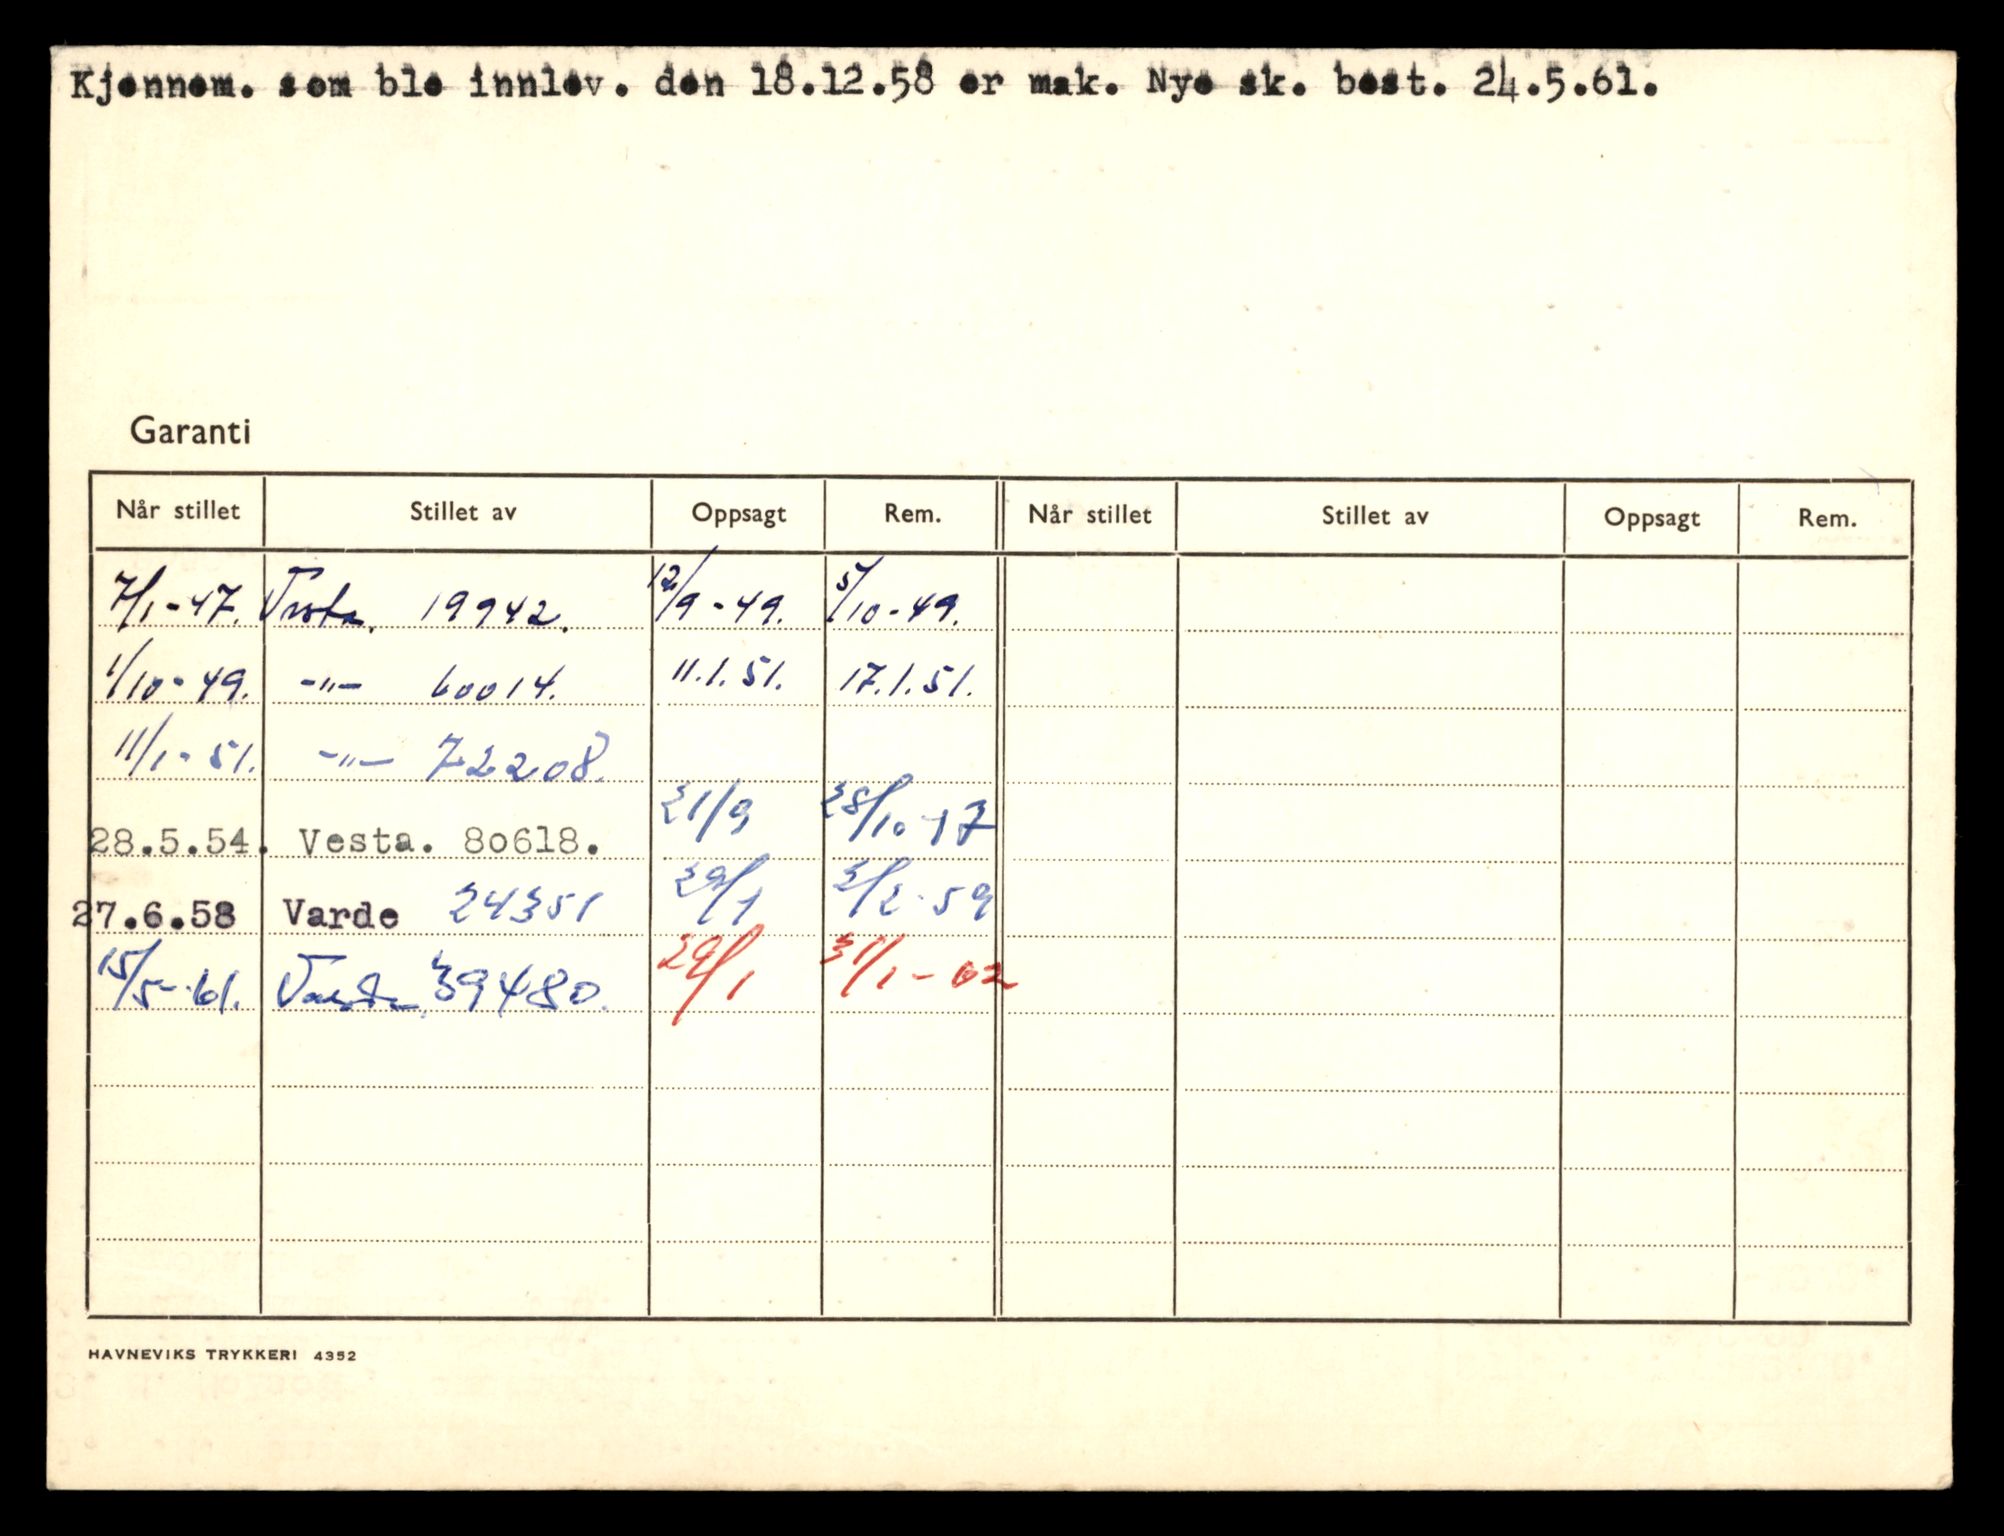 Kjennem. som ble innlev. den 18.12.58 er mak. Nye sk. best. 24.5.61.
Garanti
Når stillet Stillet av Oppsagt Rem. Når stillet Stillet av Oppsagt Rem.
7/1-47. Vesta. 19942. 12/9-49. 5/10-49.
1/10-49. -"- 60014. 11.1.51. 17.1.51.
11/1-51. -"- 72208.
28.5.54. Vesta. 80618. 21/9 28/10-57
27.6.58 Varde 24351 29/1 2/2-59
15/5-61. 39480. 29/1 31/1-62
HAVNEVIKS TRYKKERI 4352